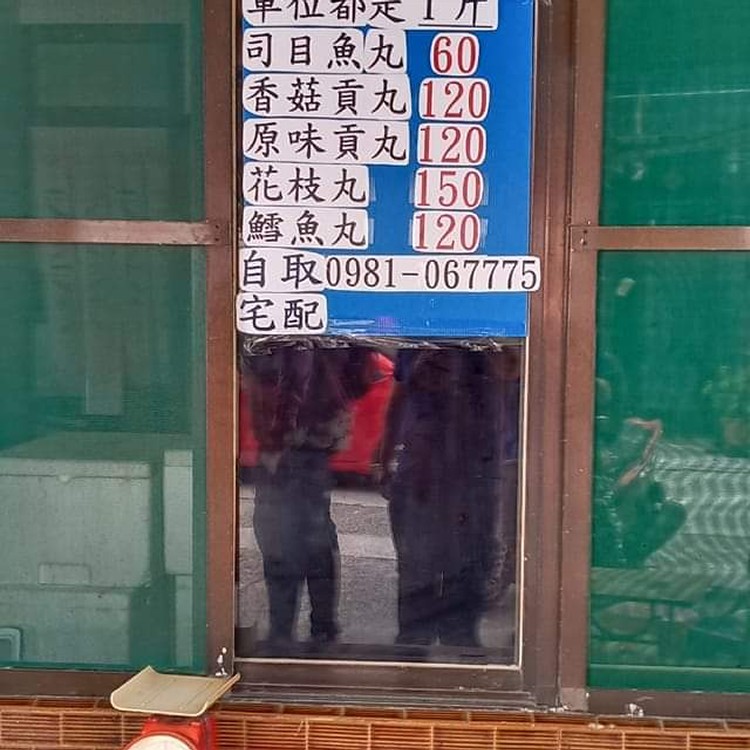 單位都是1斤
司目魚丸 60
香菇貢丸 120
原味貢丸 120
花枝丸 150
鱈魚丸 120
自取0981-067775
宅配